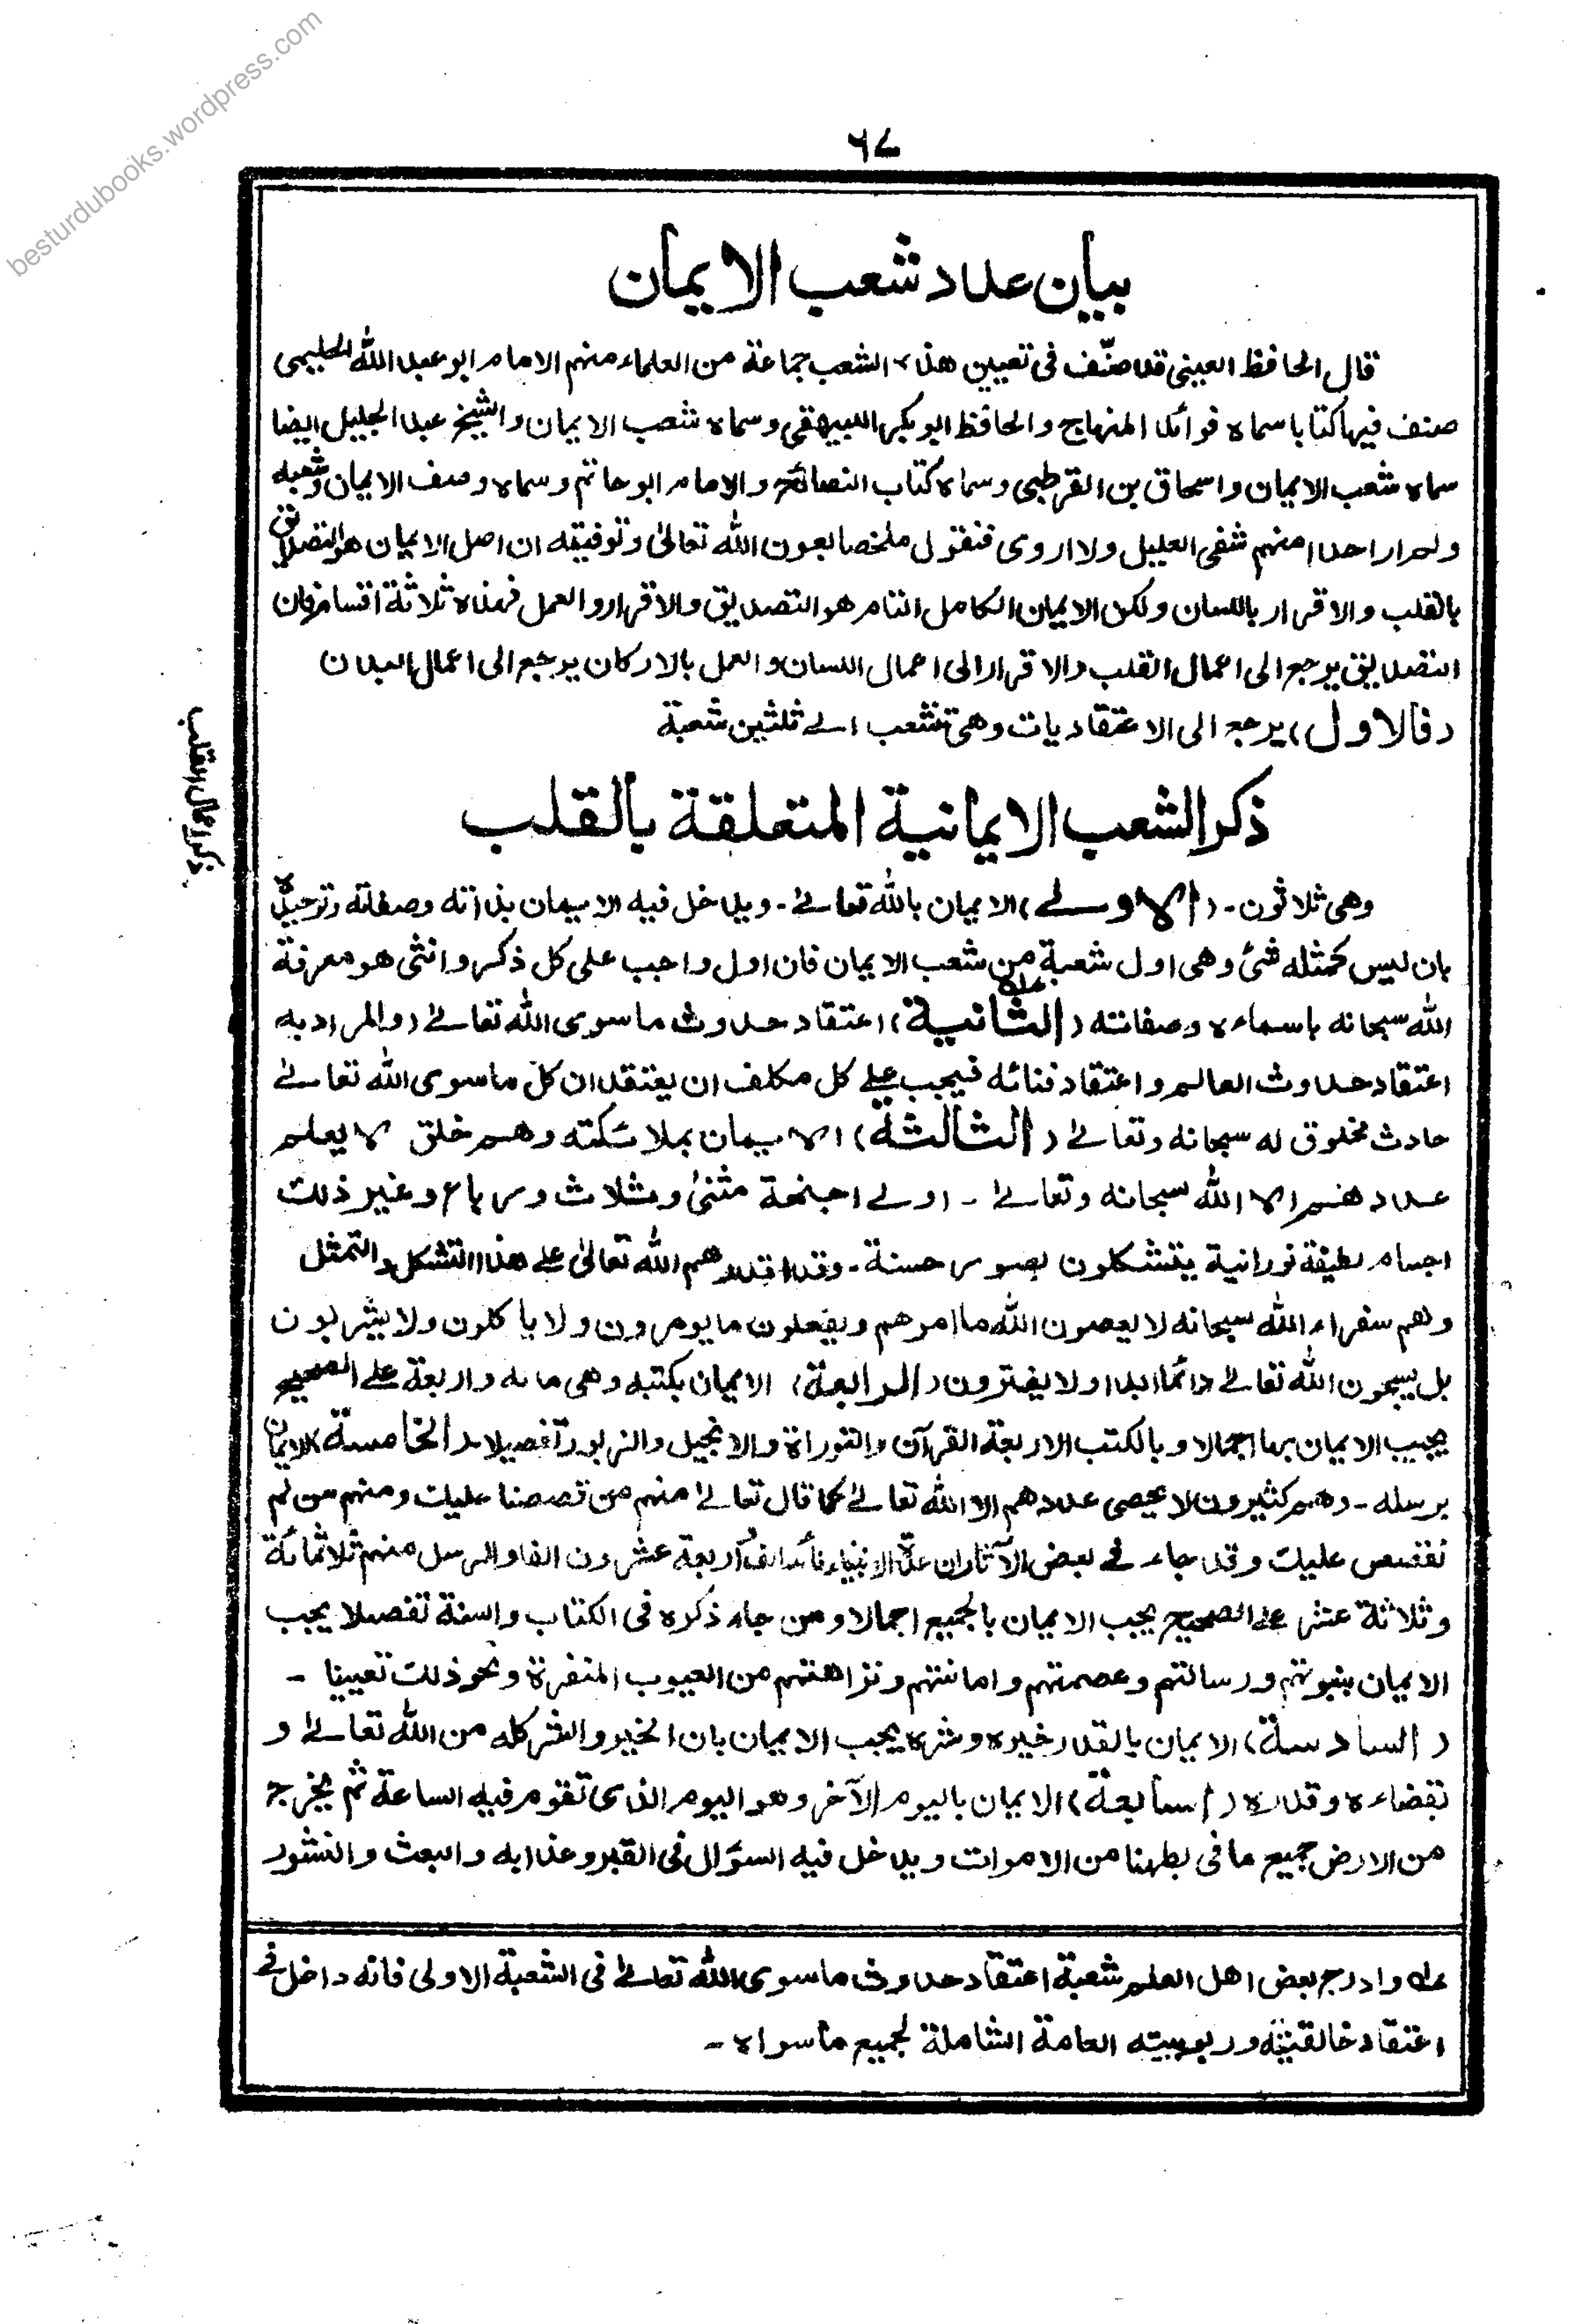 besturdubooks.wordpress.com
٦٧
بيان عدد شعب الايمان
قال الحافظ العينى قد صنّف فى تعيين هذه الشعب جماعة من العلماء منهم الامام ابو عبد الله الحليمى
صنف فيها كتابا سماه فوائد المنهاج والحافظ ابو بكر البيهقى وسماه شعب الايمان والشيخ عبد الجليل ايضا
سماه شعب الايمان واسحاق بن القرطبى وسماه كتاب النصائح والامام ابو حاتم وسماه وصف الايمان وشعبه
ولم ار احدا منهم شفى العليل ولا اروى فنقول ملخصا بعون الله تعالىٰ وتوفيقه ان اصل الايمان هو التصديق
بالقلب والاقرار باللسان ولكن الايمان الكامل التام هو التصديق والاقرار والعمل فهذه ثلاثة اقسام فان
التصديق يرجع الى اعمال القلب والاقرار الى اعمال اللسان والعمل بالاركان يرجع الى اعمال البدن
(فالاول) يرجع الى الاعتقاديات وهى تتشعب الے ثلثين شعبة
ذكر اعمال القلب
ذكر الشعب الايمانية المتعلقة بالقلب
وهى ثلاثون - (الاولے) الايمان بالله تعالےٰ - ويدخل فيه الايمان بذاته وصفاته وتوحيده
بان ليس كمثله شئ وهى اول شعبة من شعب الايمان فان اول واجب على كل ذكر وانثى هو معرفة
الله سبحانه باسماءه وصفاته (الثانية) عله اعتقاد حدوث ماسوى الله تعالےٰ (والمراد به
اعتقاد حدوث العالم واعتقاد فنائه فيجب علے كل مكلف ان يعتقد ان كل ماسوى الله تعالےٰ
حادث مخلوق له سبحانه وتعالےٰ (الثالثة) الايمان بملائكته وهم خلق لا يعلم
عددهم الا الله سبحانه وتعالےٰ - اولے اجنحة مثنىٰ وثلاث ورباع وغير ذلك
اجسام لطيفة نورانية يتشكلون بصور حسنة - وقد اقدرهم الله تعالىٰ علے هذا التشكل والتمثل
وهم سفراء الله سبحانه لا يعصون الله ما امرهم ويفعلون ما يومرون ولا ياكلون ولا يشربون
بل يسبحون الله تعالےٰ دائما ابدا ولا يفترون (الرابعة) الايمان بكتبه وهى مائه واربعة علے الصحيح
يجيب الايمان بها اجمالا وبالكتب الاربعة القرآن والتوراة والانجيل والزبور تفصيلا (الخامسة) الايمان
برسله - وهم كثيرون لا يحصى عددهم الا الله تعالےٰ كما قال تعالےٰ منهم من قصصنا عليك ومنهم من لم
نقصص عليك وقد جاء فے بعض الآثار ان عدة الانبياء مائة الف و اربعة عشرون الفا والرسل منهم ثلاثمائة
وثلاثة عشر علے الصحيح يجب الايمان بالجميع اجمالا ومن جاء ذكره فى الكتاب والسنة تفصلا يجب
الايمان بنبوتهم ورسالتهم وعصمتهم وامانتهم ونزاهتهم من العيوب المنفرة ونحو ذلك تعيينا -
(السادسة) الايمان بالقدر خيره وشره يجب الايمان بان الخير والشر كله من الله تعالےٰ و
بقضاءه وقدره (السابعة) الايمان باليوم الآخر وهو اليوم الذى تقوم فيه الساعة ثم يخرج
من الارض جميع ما فى بطنها من الاموات ويدخل فيه السؤال فى القبر وعذابه والبعث والنشور
عله وادرج بعض اهل العلم شعبة اعتقاد حدوث ماسوى الله تعالےٰ فى الشعبة الاولى فانه داخل فے
اعتقاد خالقيته وربوبيته العامة الشاملة لجميع ماسواه -